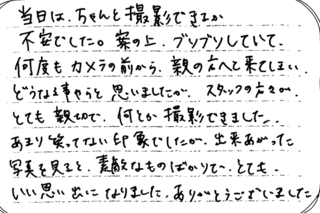 当日は、ちゃんと撮影できるか
不安でした。案の上、ブツブツしていて、
何度もカメラの前から、親の方へと来てしまい、
どうなる事やらと思いましたが、スタッフの方々が、
とても親切で、何とか撮影できました。
あまり笑ってない印象でしたが、出来あがった
写真を見ると、素敵なものばかりで、とても
いい思い出になりました。ありがとうございました